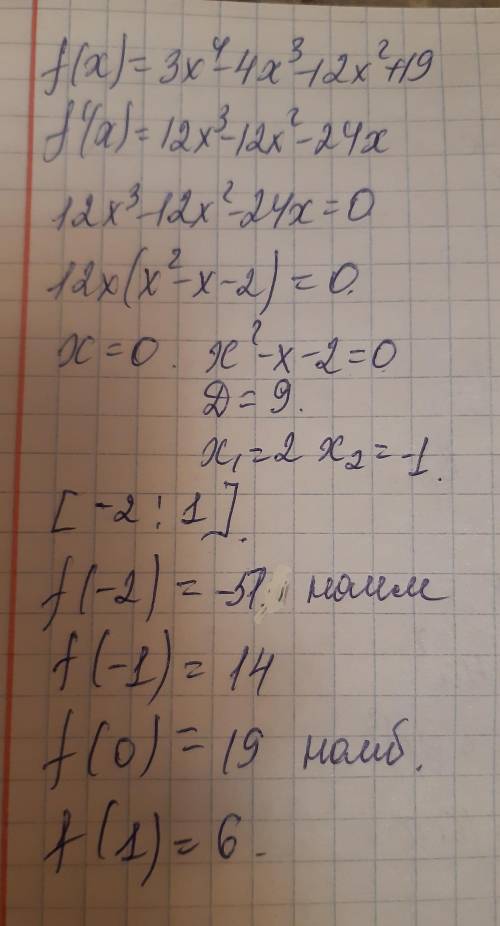 f(x) = 3x⁴ - 4x³ - 12x² + 19
f'(x) = 12x³ - 12x² - 24x
12x³ - 12x² - 24x = 0
12x(x² - x - 2) = 0.
x = 0. x² - x - 2 = 0
Д = 9.
x₁ = 2 x₂ = -1.
[-2; 1].
f(-2) = -51. наим
f(-1) = 14
f(0) = 19 наиб.
f(1) = 6.